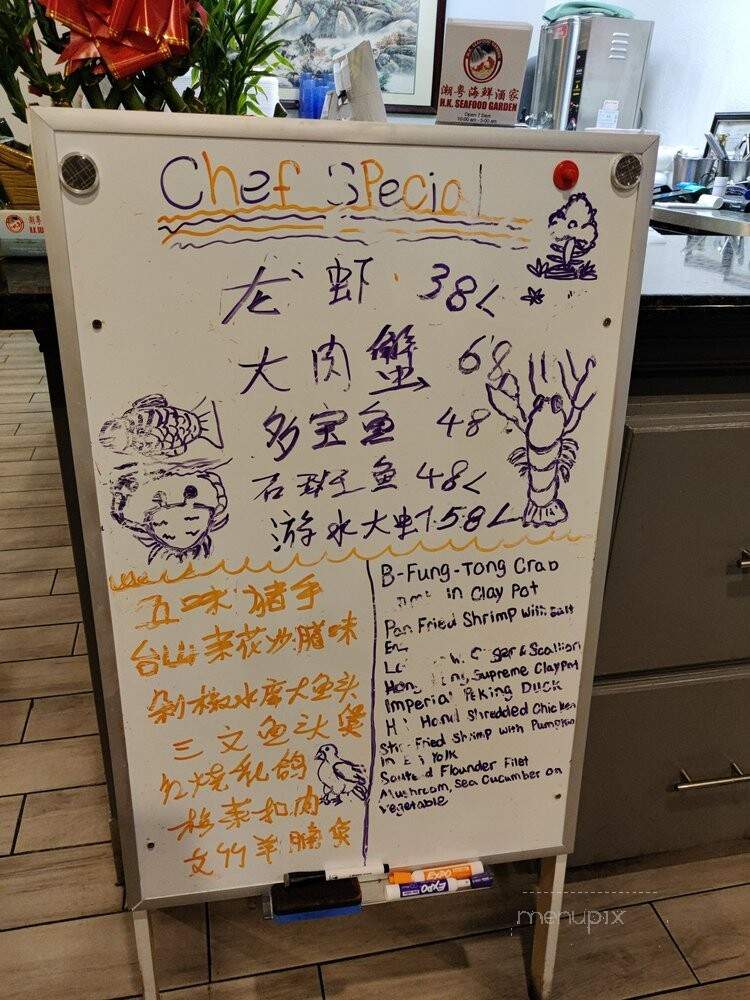 潮粤海鲜酒家
H.K. SEAFOOD GARDEN
Open 7 Days
Chef Special
龙虾 38
大肉蟹 68
多宝鱼 48
石斑鱼 48
游水大虾 58
五味猪手
台山菜花炒腊味
剁椒水库大鱼头
三文鱼头煲
红烧乳鸽
梅菜扣肉
支竹羊腩煲
B-Fung-Tong Crab
in Clay Pot
Pan Fried Shrimp With Salt
& Scallion
Supreme Clay Pot
Imperial Peking Duck
Hand Shredded Chicken
Stir-Fried Shrimp with Pumpkin
in Yolk
Sauteed Flounder Filet
Mushroom, Sea Cucumber on
Vegetable
EXPO
EXPO
menupix